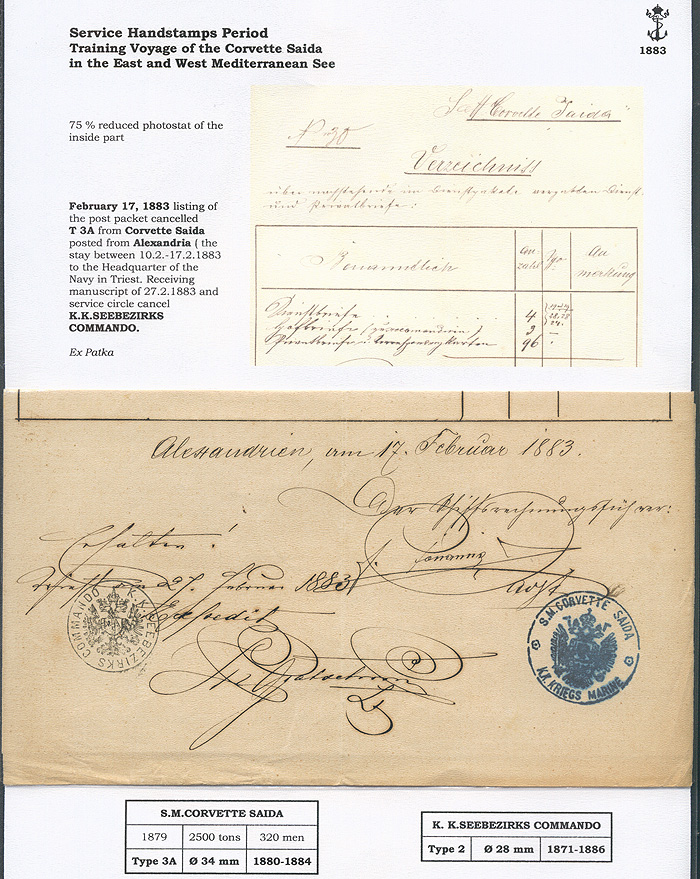 Service Handstamps Period
Training Voyage of the Corvette Saida
in the East and West Mediterranean See
1883
75 % reduced photostat of the
inside part
February 17, 1883 listing of
the post packet cancelled
T 3A from Corvette Saida
posted from Alexandria ( the
stay between 10.2.-17.2.1883
to the Headquarter of the
Navy in Triest. Receiving
manuscript of 27.2.1883 and
service circle cancel
K.K.SEEBEZIRKS
COMMANDO.
Ex Patka
Corvette Saida
Verzeichniss
über nachstehende im Dienstpakete Dienst-
und Privatbriefe:
An
zahl
An
merkung
Dienstbriefe 4
96
Alexandrien, am 17. Februar 1883.
Der Schiffsrechnungsführer:
Erhalten!
Triest am 27. Februar 1883
Expedit
K.K.SEEBEZIRKS COMMANDO
S.M.CORVETTE SAIDA
K.K. KRIEGS MARINE
S.M.CORVETTE SAIDA
1879 2500 tons 320 men
Type 3A Ø 34 mm 1880-1884
K. K.SEEBEZIRKS COMMANDO
Type 2 Ø 28 mm 1871-1886